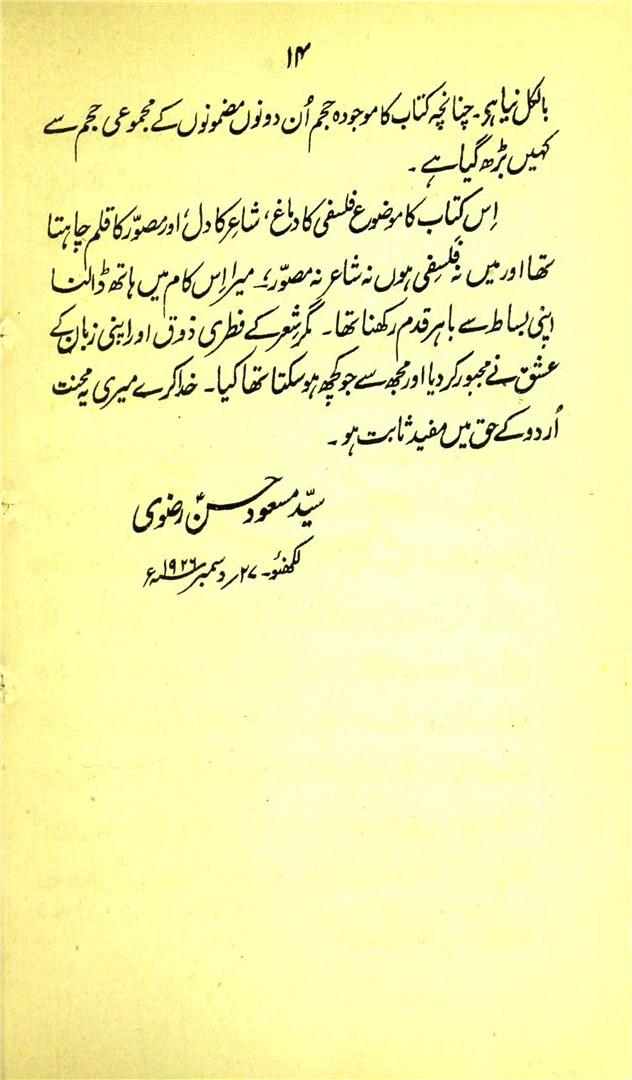 ۱۴
بالکل نیا ہی۔ چنانچہ کتاب کا موجودہ حجم اُن دونوں مضمونوں کے مجموعی حجم سے
کہیں بڑھ گیا ہے۔
اِس کتاب کا موضوع فلسفی کا دماغ، شاعر کا دل، اور مصوّر کا قلم چاہتا
تھا اور میں نہ فلسفی ہوں نہ شاعر نہ مصوّر؛ میرا اِس کام میں ہاتھ ڈالنا
اپنی بساط سے باہر قدم رکھنا تھا۔ مگر شعر کے فطری ذوق اور اپنی زبان کے
عشق نے مجبور کر دیا اور مجھ سے جو کچھ ہو سکتا تھا کیا۔ خدا کرے میری یہ محنت
اُردو کے حق میں مفید ثابت ہو۔
سیّد مسعود حسن رضوی
لکھنؤ۔ ۲۷؍ دسمبر ۱۹۲۶ء